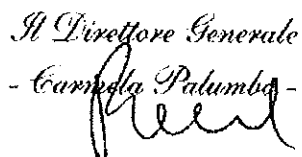 Il Direttore Generale
- Carmela Palumbo -